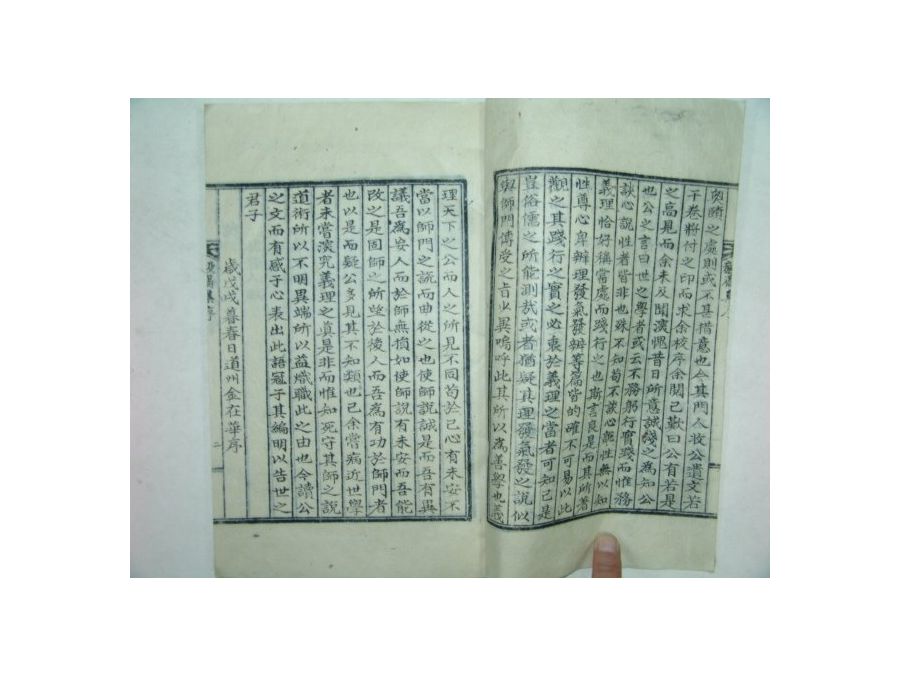 奧頤之處則或不甚措意也今其門人收公遺文若
干卷將付之印而求余校序余閱已歎曰公有若是
之高見而余未及聞深愧昔日所意誠淺之為知公
也公之言曰世之學者或云不務躬行實踐而惟務
談心說性者皆非也殊不知苟不談心說性無以知
義理恰好稱當處而踐行之也斯言良是而其所著
性尊心卑辨理發氣發辨等篇皆的確不可易以此
觀之其踐行之實之必乘於義理之當者可知已是
豈俗儒之所能測哉或者猶疑其理發氣發之說似
與師門傳受之旨少異嗚呼此其所以為善學也義
理天下之公而人之所見不同苟於己心有未安不
當以師門之說而曲從之也使師說誠是而吾有異
議吾為妄人而於師無損如使師說有未安而吾能
改之是固師之所望於後人而吾為有功於師門者
也以是而疑公多見其不知類也已余嘗病近世學
者未嘗深究義理之真是非而惟知死守其師之說
道術所以不明異端所以益熾職此之由也今讀公
之文而有感于心表出此語冠于其編明以告世之
君子
歲戊戌暮春日道州金在華序